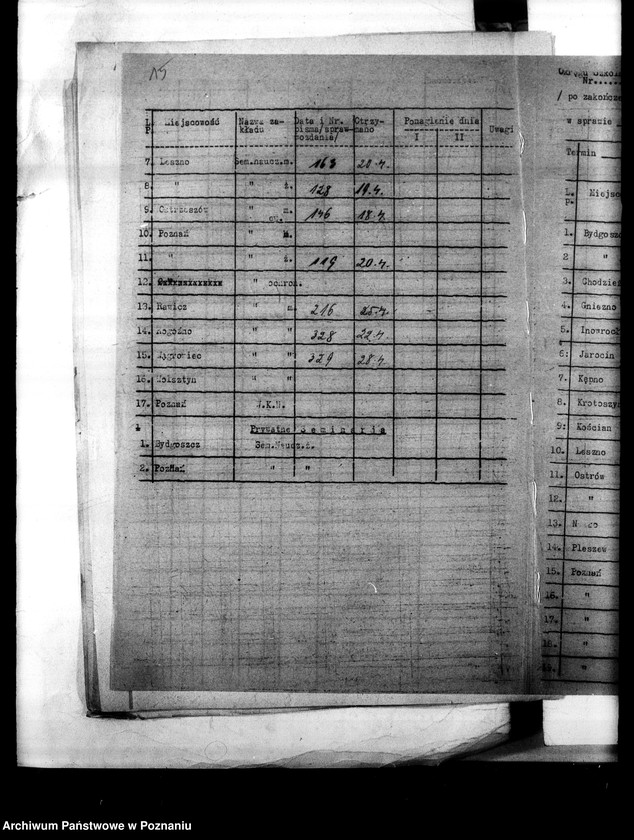 15
L. P. Miejscowość Nazwa za- kładu Data i Nr. pisma/spraw- ozdania/ Otrzy- mano Ponaglenie dnia I II Uwagi
7. Leszno Sem.naucz.m. 163 20.4.
8. " " ż. 128 19.4.
9. Ostrzeszów " m. 146 18.4.
10. Poznań " m.
11. " " ż. 119 20.4.
12. " ochron.
13. Rawicz " m. 216 25.4.
14. Rogoźno " " 328 22.4.
15. Wągrowiec " " 329 28.4.
16. Wolsztyn " "
17. Poznań W.K.N.
Prywatne Seminarja
1. Bydgoszcz Sem.Naucz.ż.
2. Poznań " "
Okręgu Szkoln
Nr.....
/ po zakończe
w sprawie
Termin
L. p. Miejsc
1. Bydgoszc
2 "
3. Chodzież
4. Gniezno
5. Inowrocł
6: Jarocin
7. Kępno
8. Krotoszyn
9: Kościan
10. Leszno
11. Ostrów
12. "
13.
14. Pleszew
15. Poznań
16. "
17. "
18. "
19. "
Archiwum Państwowe w Poznaniu